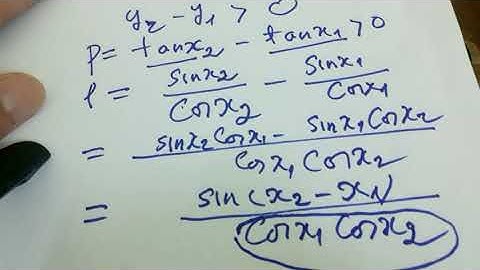 y₂ - y₁ > 0
P = tanx₂ - tanx₁ > 0
P = sinx₂/Cosx₂ - sinx₁/Cosx₁
= sinx₂Cosx₁ - sinx₁Cosx₂ / Cosx₁ Cosx₂
= sin(x₂ - x₁) / Cosx₁ Cosx₂